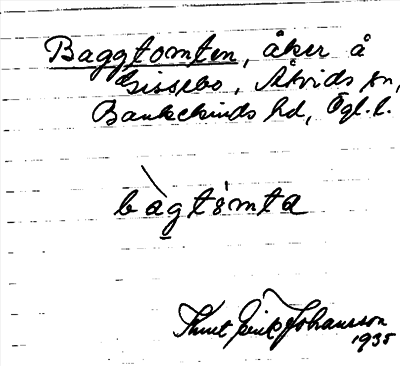 Baggtomten, åker å
Gissebo, Åtvids sn,
Bankekinds hd, Ögl. l.
bàgtòmta
Knut Erik Johansson
1935